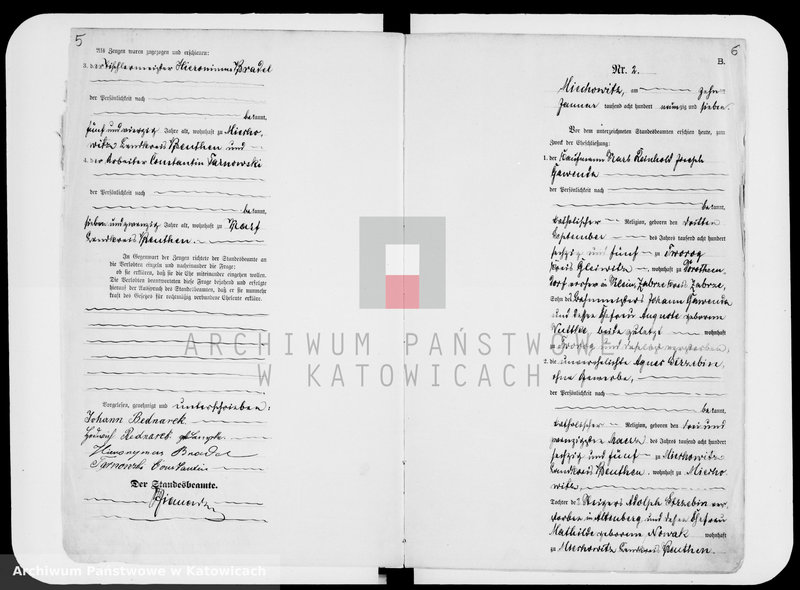 5
Als Zeugen waren zugezogen und erschienen:
3. der Tischlermeister Hieronimus Bradel
der Persönlichkeit nach
bekannt,
fünf und vierzig Jahre alt, wohnhaft zu Miecho-
witz Landkreis Beuthen und
4. der Arbeiter Constantin Tarnowski
der Persönlichkeit nach
bekannt,
sieben und zwanzig Jahre alt, wohnhaft zu
Landkreis Beuthen.
In Gegenwart der Zeugen richtete der Standesbeamte an
die Verlobten einzeln und nacheinander die Frage:
ob sie erklären, daß sie die Ehe miteinander eingehen wollen.
Die Verlobten beantworteten diese Frage bejahend und erfolgte
hierauf der Ausspruch des Standesbeamten, daß er sie nunmehr
kraft des Gesetzes für rechtmäßig verbundene Eheleute erkläre.
Vorgelesen, genehmigt und unterschrieben:
Johann Bednarek
Bednarek
Hieronymus Bradel
Tarnowski Constantin
Der Standesbeamte.
6
B.
Nr. 2.
Miechowitz, am zehn
Januar tausend acht hundert neunzig und sieben.
Vor dem unterzeichneten Standesbeamten erschien heute, zum
Zweck der Eheschließung:
1. der Kaufmann Karl Reinhold Joseph
Gawenda
der Persönlichkeit nach
bekannt,
katholischer Religion, geboren den dritten
September des Jahres tausend acht hundert
sechzig und fünf zu Tworog
Kreis Gleiwitz, wohnhaft zu Dorotheen-
dorf vorher in Klein Zabrze Kreis Zabrze,
Sohn des Bahnmeisters Johann Gawenda
und dessen Ehefrau Auguste geborene
beide zuletzt wohnhaft
zu Tworog und daselbst verstorben,
2. die unverehelichte Agnes
ohne Gewerbe,
der Persönlichkeit nach
bekannt,
katholischer Religion, geboren den drei und
zwanzigsten März des Jahres tausend acht hundert
sechzig und fünf zu Miechowitz
Landkreis Beuthen, wohnhaft zu Miecho-
witz,
Tochter des Steigers Adolph ver-
storben in Altenberg und dessen Ehefrau
Mathilde geborene Nowak wohnhaft
zu Miechowitz Landkreis Beuthen.
ARCHIWUM PAŃSTWOWE
W KATOWICACH
Archiwum Państwowe w Katowicach